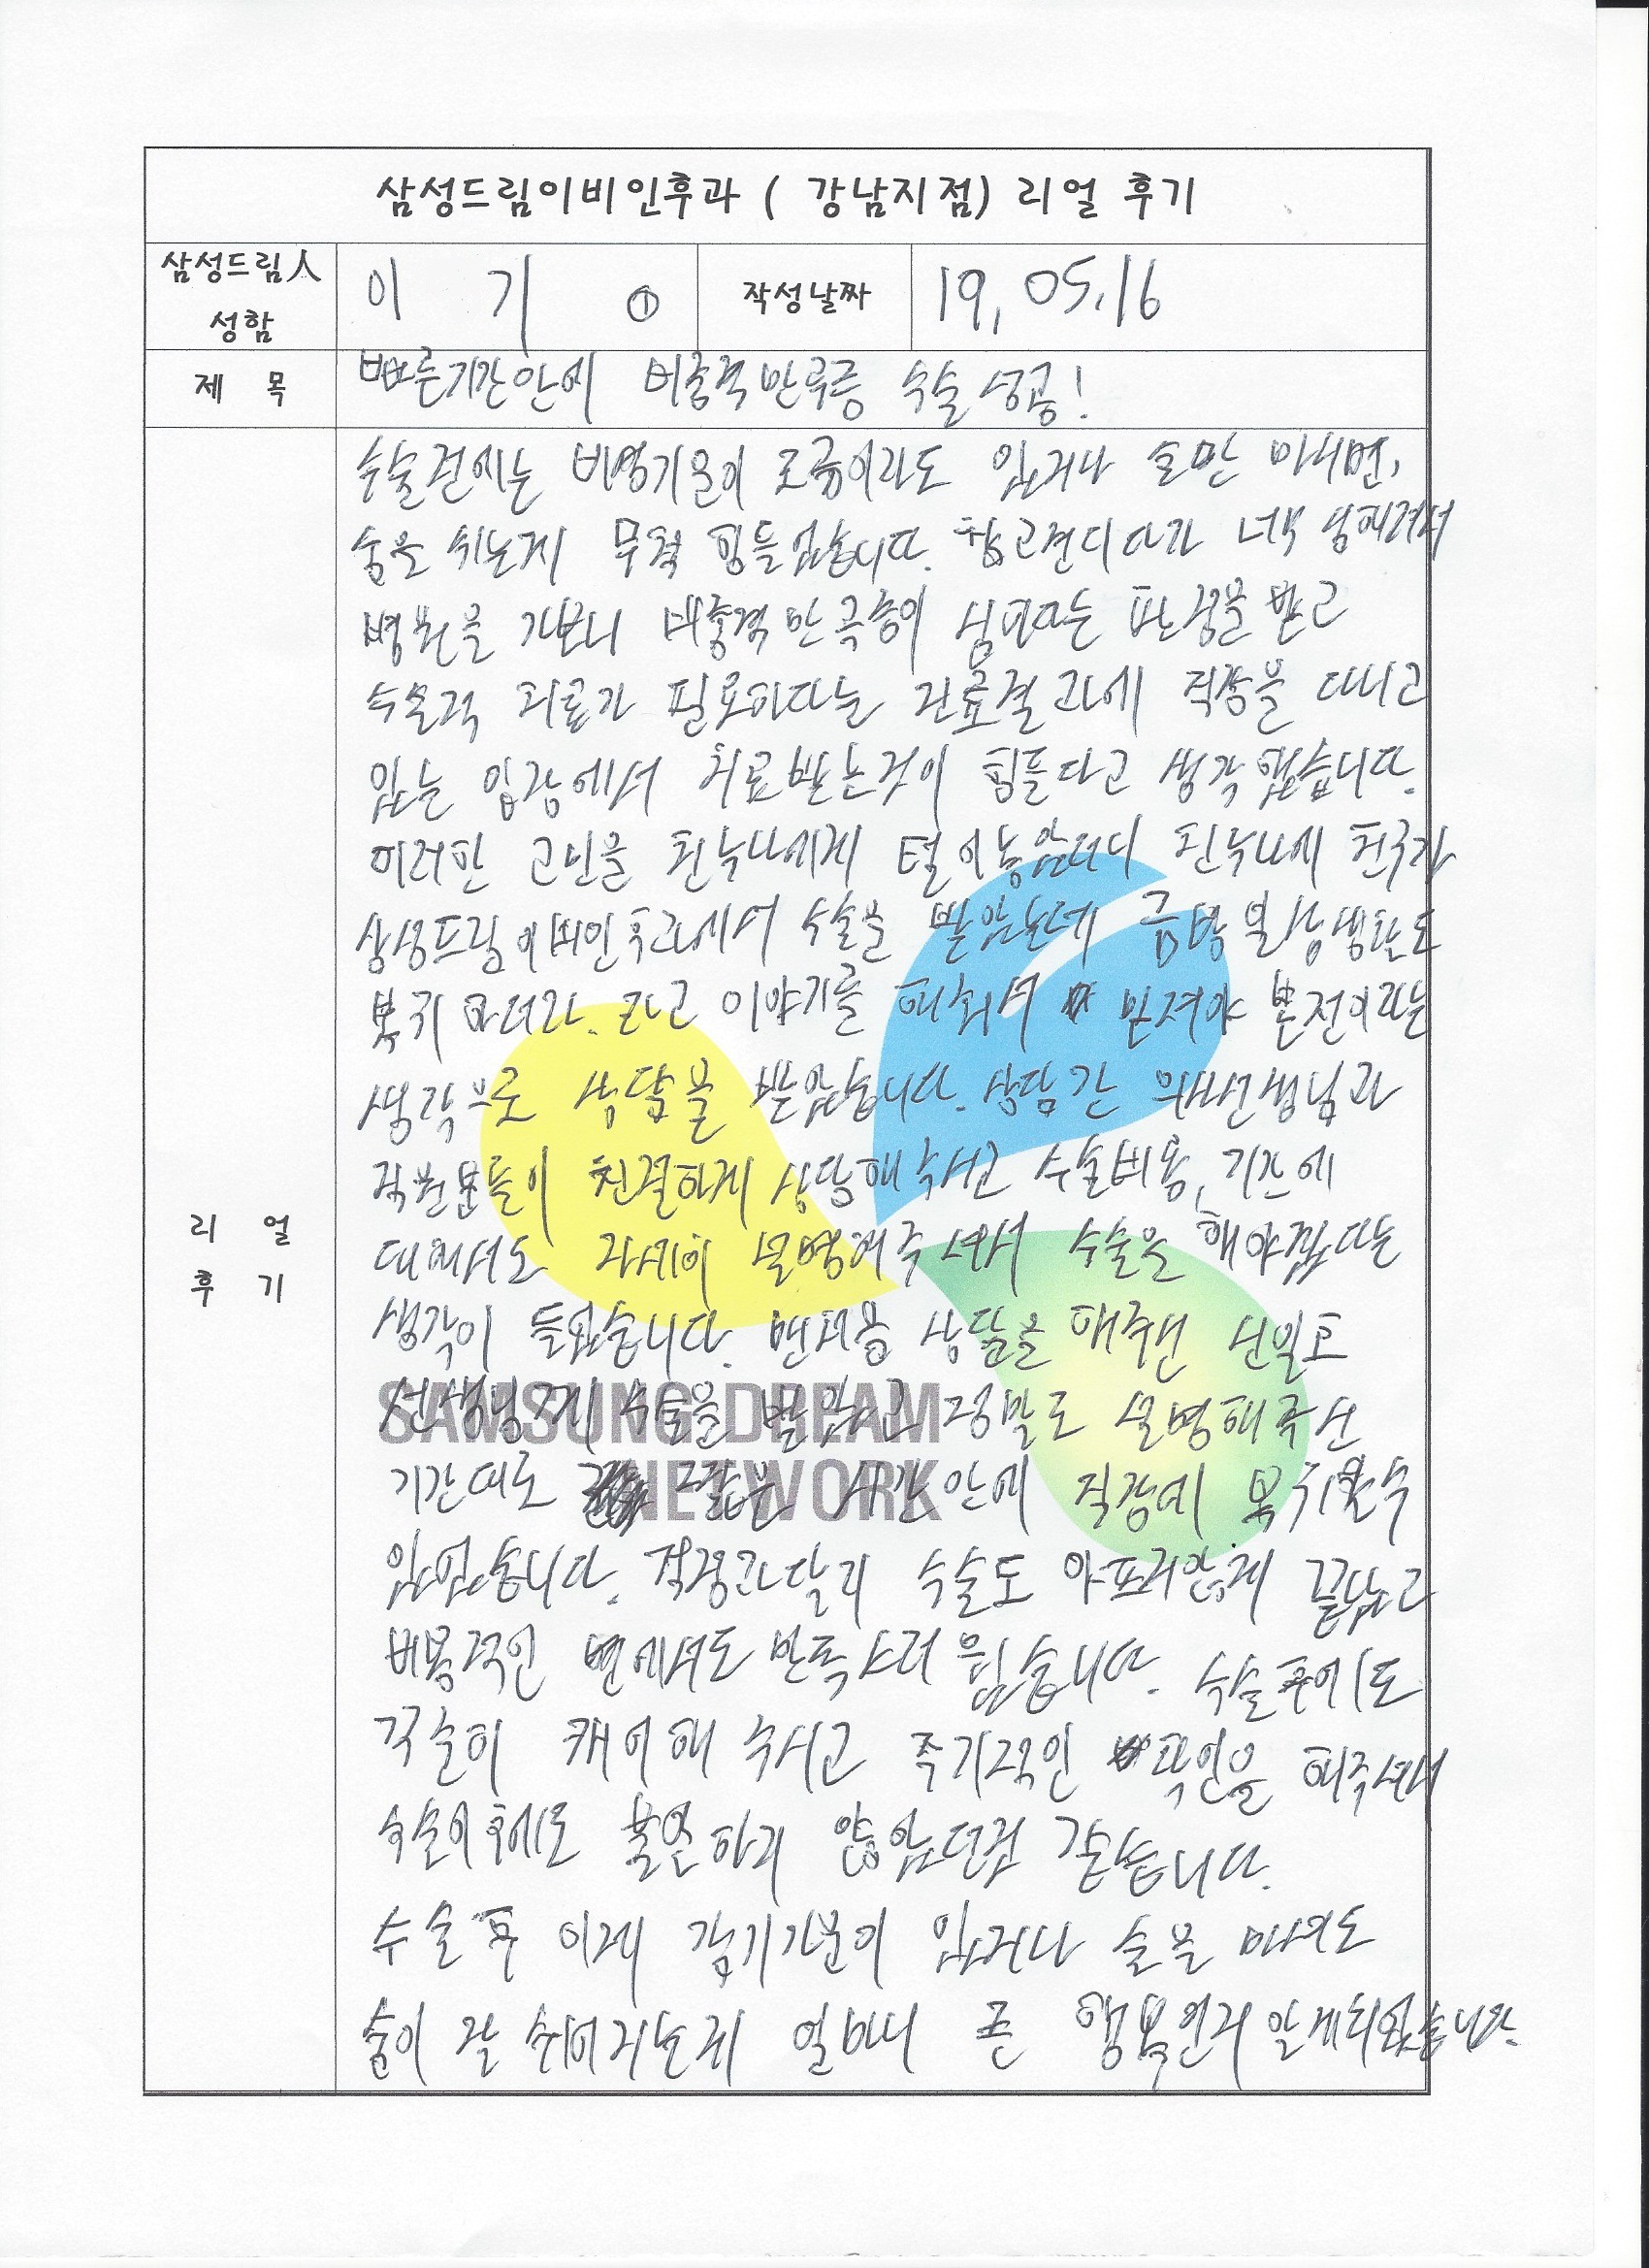 삼성드림이비인후과 ( 강남지점) 리얼 후기
삼성드림人
성함
이 기 ①
작성날짜
19, 05.16
제 목
빠른기간안에 비중격만곡증 수술 성공!
수술전에는 비염기운이 조금이라도 있거나 술만 마시면,
숨을 쉬는게 무척 힘들었습니다. 참고견디다가 너무 심해져서
병원을 가보니 비중격만곡증이 심하다는 판정을 받고
수술적 치료가 필요하다는 진료결과에 직장을 다니고
있는 입장에서 치료받는것이 힘들다고 생각했습니다.
이러한 고민을 친누나에게 털어놓았더니 친누나에 친구가
삼성드림이비인후과에서 수술을 받았는데 금방 일상생활로
복귀 하더라. 라고 이야기를 해줘서 만져야 본전이라는
생각으로 상담을 받았습니다. 상담간 의사선생님과
직원분들이 친절하게 상담해주시고 수술비용, 기간에
대해서도 자세히 설명해주셔서 수술을 해야겠다는
생각이 들었습니다. 맨처음 상담을 해주셨던
선생님께 수술을 받았고 정말로 설명해주신
기간대로 짧은 시간안에 직장에 복귀할수
있었습니다. 걱정과달리 수술도 아프지않게 끝났고
비용적인 면에서도 만족스러웠습니다. 수술후에도
꾸준히 케어해 주시고 주기적인 확인을 해주셔서
수술이후에도 불안하지 않았던것 같습니다.
수술후 이제 감기기운이 있거나 술을 마셔도
숨이 잘 쉬어지는게 얼마나 큰 행복인지 알게되었습니다.
리 얼
후 기
SAMSUNG DREAM
NETWORK